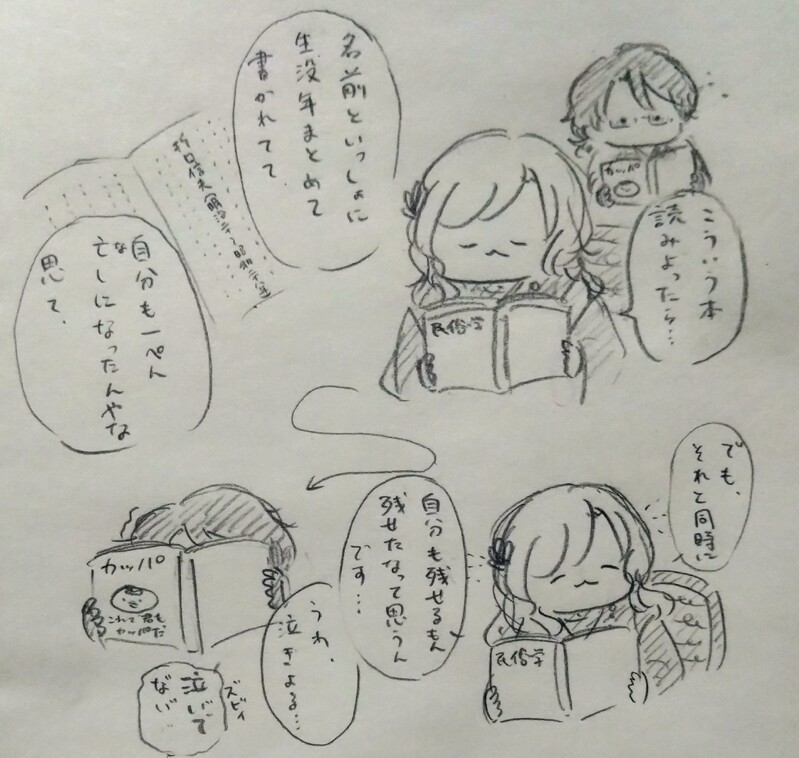 こういう本
読みよったら…
カッパ
民俗学
名前といっしょに
生没年まとめて
書かれてて
折口信夫(明治二十〜昭和二十八年
自分も一ぺん
亡しになったんやな
な
思て、
でも、
それと同時に
民俗学
自分も残せるもん
残せたなって思うん
です…
うわ、
泣きよる…
カッパ
これで君も
カッパだ
ズビィ
泣いて
ない…